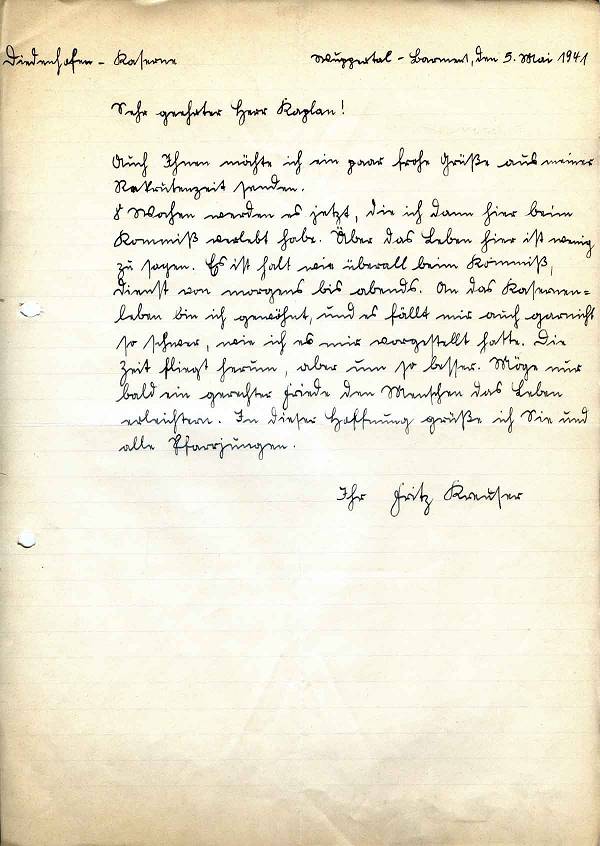 Diedenhofen - Kaserne
Wuppertal - Barmen, den 5. Mai 1941
Sehr geehrter Herr Kaplan!
Auch Ihnen möchte ich ein paar frohe Grüße aus meiner
Rekrutenzeit senden.
8 Wochen werden es jetzt, die ich dann hier beim
Kommiß verlebt habe. Über das Leben hier ist wenig
zu sagen. Es ist halt wie überall beim Kommiß,
Dienst von morgens bis abends. An das Kasernen=
leben bin ich gewöhnt, und es fällt mir auch garnicht
so schwer, wie ich es mir vorgestellt hatte. Die
Zeit fliegt herum, aber um so besser. Möge nur
bald ein gerechter Friede den Menschen das Leben
erleichtern. In dieser Hoffnung grüße ich Sie und
alle Pfarrjungen.
Ihr Fritz Kreuser